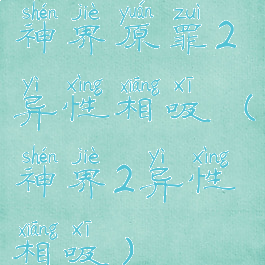 shén jiè yuán zuì
神界原罪2
yì xìng xiāng xī
异性相吸（
shén jiè yì xìng
神界2异性
xiāng xī
相吸）